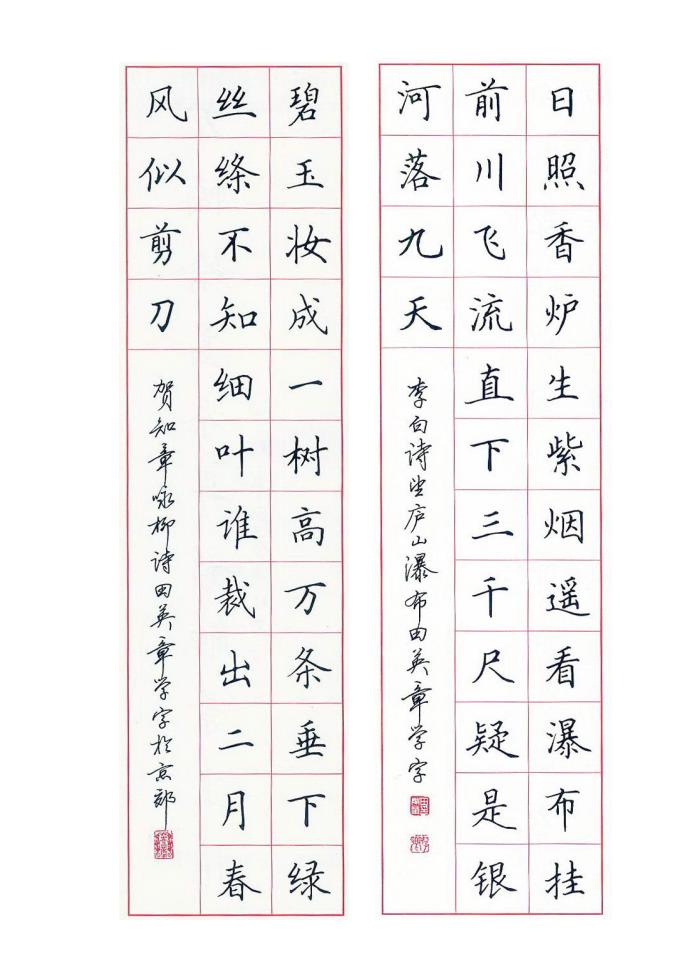 日照香炉生紫烟遥看瀑布挂
前川飞流直下三千尺疑是银
河落九天
李白诗望庐山瀑布田英章学字
碧玉妆成一树高万条垂下绿
丝绦不知细叶谁裁出二月春
风似剪刀
贺知章咏柳诗田英章学字於京